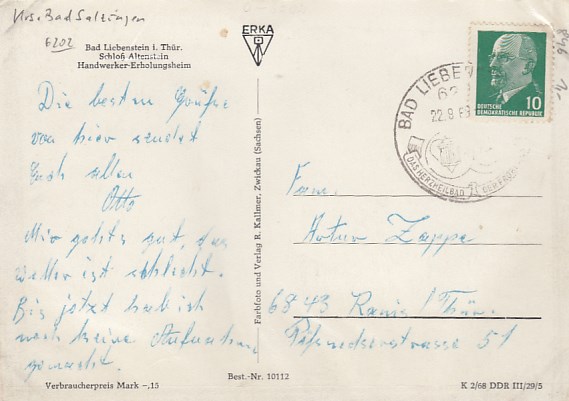 Krs. Bad Salzungen
6202
Bad Liebenstein i. Thür.
Schloß Altenstein
Handwerker-Erholungsheim
ERKA
Die besten Grüße
von hier sendet
Euch allen
Otto
Mir gehts gut, das
wetter ist schlecht.
Bis jetzt hab ich
noch keine Aufnahme
gemacht.
Verbraucherpreis Mark -,15
Best.-Nr. 10112
Farbfoto und Verlag R. Kallmer, Zwickau (Sachsen)
BAD LIEBEN
62
22.8.69
DAS HERZHEILBAD
10
DEUTSCHE
DEMOKRATISCHE REPUBLIK
Fam.
Artur Zappe
6843 Ranis /Thür.
51
K 2/68 DDR III/29/5